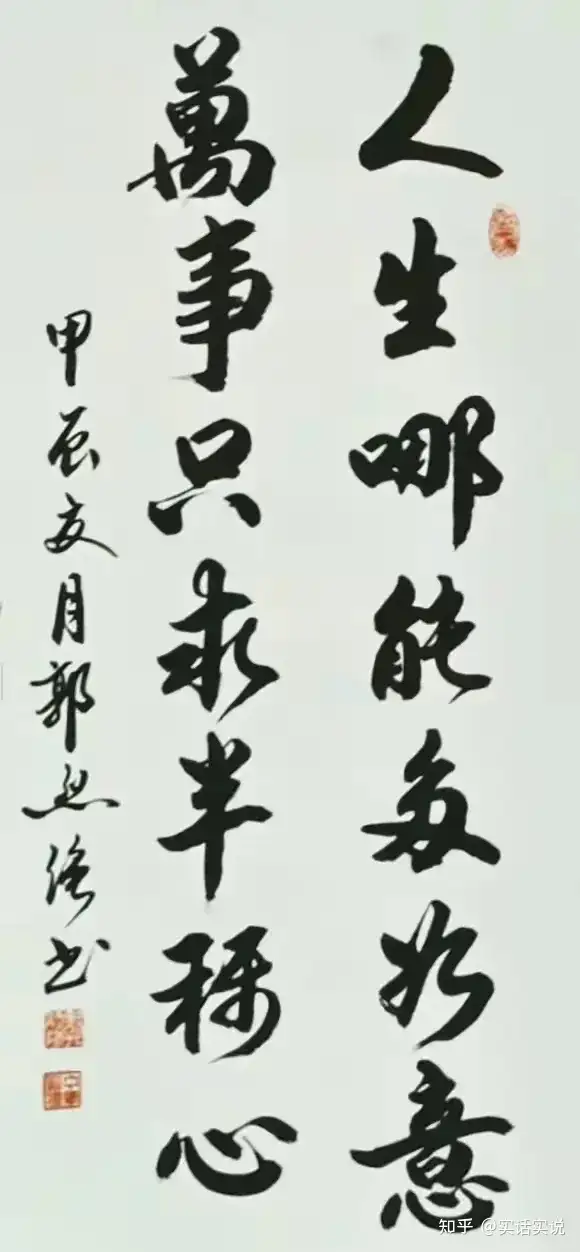 人生哪能多如意
萬事只求半称心
甲辰夏月郭书
知乎 @实话实说